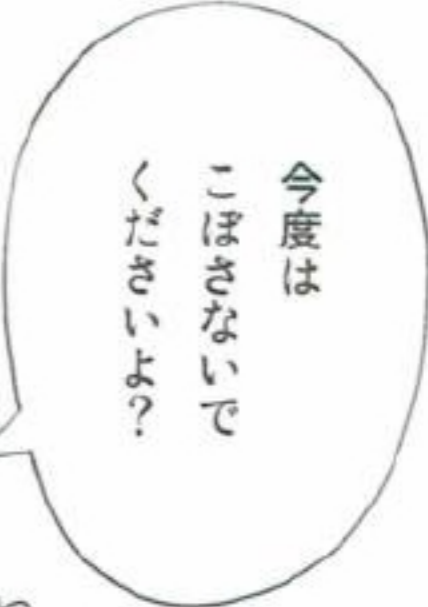 今度は
こぼさないで
くださいよ？